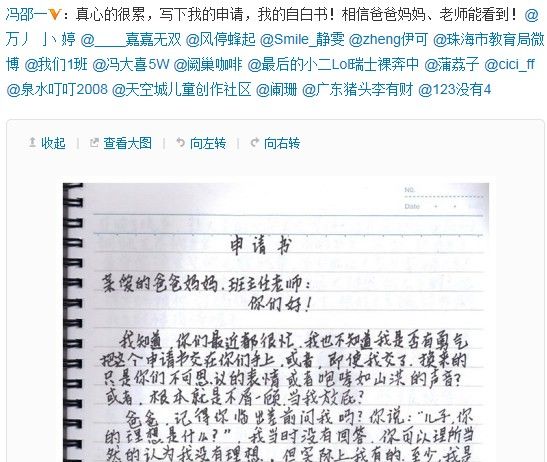 冯邵一V：真心的很累，写下我的申请，我的自白书！相信爸爸妈妈、老师能看到！@
万丿 丨丶婷 @____嘉嘉无双 @风停蜂起 @Smile_静雯 @zheng伊可 @珠海市教育局微
博 @我们1班 @冯大喜5W @阙巢咖啡 @最后的小二Lol瑞士裸奔中 @蒲荔子 @cici_ff
@泉水叮叮2008 @天空城儿童创作社区 @阑珊 @广东猪头李有财 @123没有4
收起 | 查看大图 | 向左转 | 向右转
NO.
Date
申请书
亲爱的爸爸妈妈、班主任老师：
你们好！
我知道，你们最近都很忙，我也不知道我是否有勇气
把这个申请书交在你们手上，或者，即使我交了，换来的
只是你们不可思议的表情或者咆哮如山洪的声音？
或者，根本就是不屑一顾，当我放屁？
爸爸，记得你临出差前问我吗？你说：“儿子，你
的理想是什么？”，我当时没有回答，你可以理所当
然的认为我没有理想，但实际上我有的，至少，我是